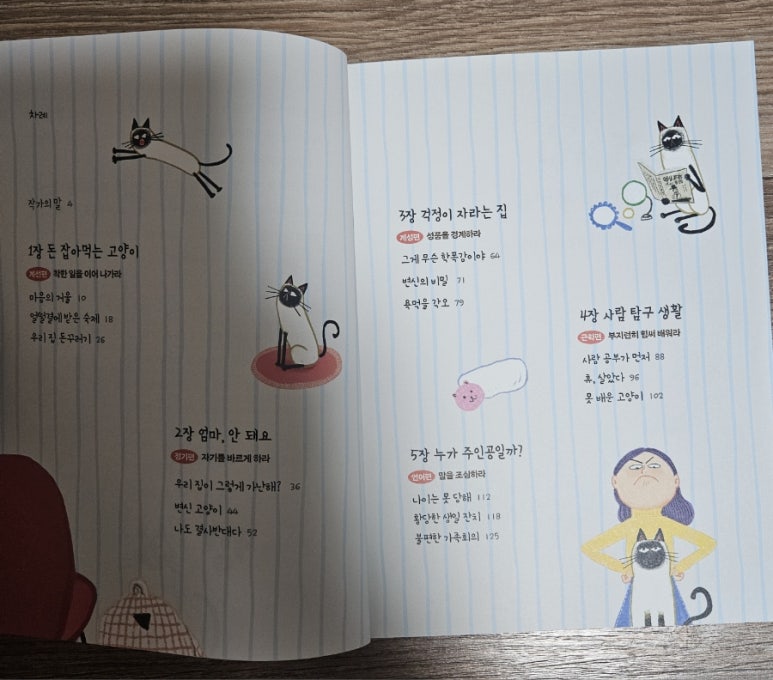 차례
작가의 말 4
1장 돈 잡아먹는 고양이
계선편 착한 일을 이어 나가라
마음의 거울 10
얼떨결에 받은 숙제 18
우리 집 돈꾸러기 26
2장 엄마, 안 돼요
정기편 자기를 바르게 하라
우리 집이 그렇게 가난해? 36
변신 고양이 44
나도 결사반대다 52
3장 걱정이 자라는 집
계성편 성품을 경계하라
그게 무슨 학폭감이야 64
변신의 비밀 71
욕먹을 각오 79
4장 사람 탐구 생활
근학편 부지런히 힘써 배워라
사람 공부가 먼저 88
휴, 살았다 96
못 배운 고양이 102
5장 누가 주인공일까?
언어편 말을 조심하라
나이는 못 당해 112
황당한 생일 잔치 118
불편한 가족회의 125